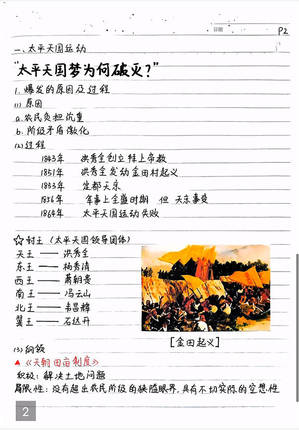 P2
一、太平天国运动
"太平天国梦为何破灭?"
1. 爆发的原因及过程
(1) 原因
a.农民负担沉重
b.阶级矛盾激化
(2) 过程
1843年 洪秀全创立拜上帝教
1851年 洪秀全发动金田村起义
1853年 定都天京
1856年 军事上全盛时期 但 天京事变
1864年 太平天国运动失败
☆封王 (太平天国领导团体)
天王 —— 洪秀全
东王 —— 杨秀清
西王 —— 萧朝贵
南王 —— 冯云山
北王 —— 韦昌辉
翼王 —— 石达开
[金田起义]
(3) 纲领
▲《天朝田亩制度》
积极: 解决土地问题
局限性: 没有超出农民阶级的狭隘眼界,具有不切实际的空想性
2